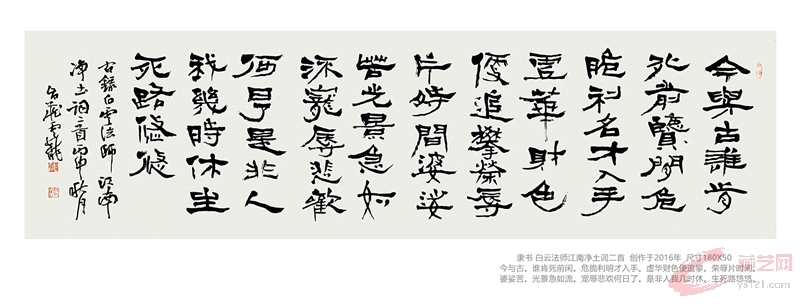 今與古誰肯
死前閒危
脆利名才入手
虛華財色
便追攀榮辱
片時間婆娑
苦光景急如
流寵辱悲歡
何日是非人
我幾時休生
死路悠悠
右錄白雲法師江南
淨土詞二首丙申秋月
隶书 白云法师江南净土词二首 创作于2016年 尺寸180X50
今与古，谁肯死前闲。危脆利明才入手，虚华财色便追攀，荣辱片时间。
婆娑苦，光景急如流。宠辱悲欢何日了。是非人我几时休，生死路悠悠。
艺网
ys121.com